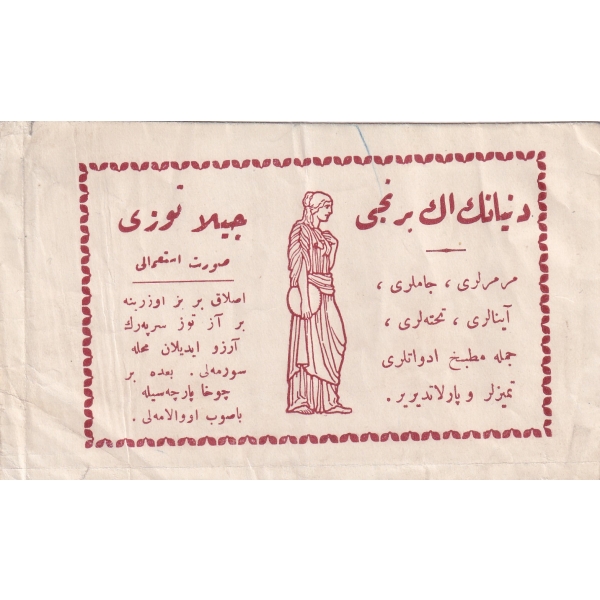 دنیانك اك برنجی
جیلا توزی
مرمرلری ، جاملری ،
آینالری ، تخته‌لری ،
جمله مطبخ ادواتلری
تمیزلر و پارلاتدیریر .
صورت استعمالی
اصلاق بر بز اوزرینه
بر آز توز سرپه‌رك
آرزو ایدیلان محله
سورمه‌لی . بعده بر
چوخا پارچه‌سیله
باصوب اووالامه‌لی .